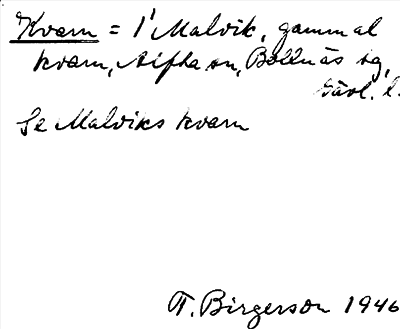 Kvarn = i Malvik, gammal
kvarn, Bollnäs sg,
Gävl. l.
Se Malviks kvarn
T. Birgerson 1946